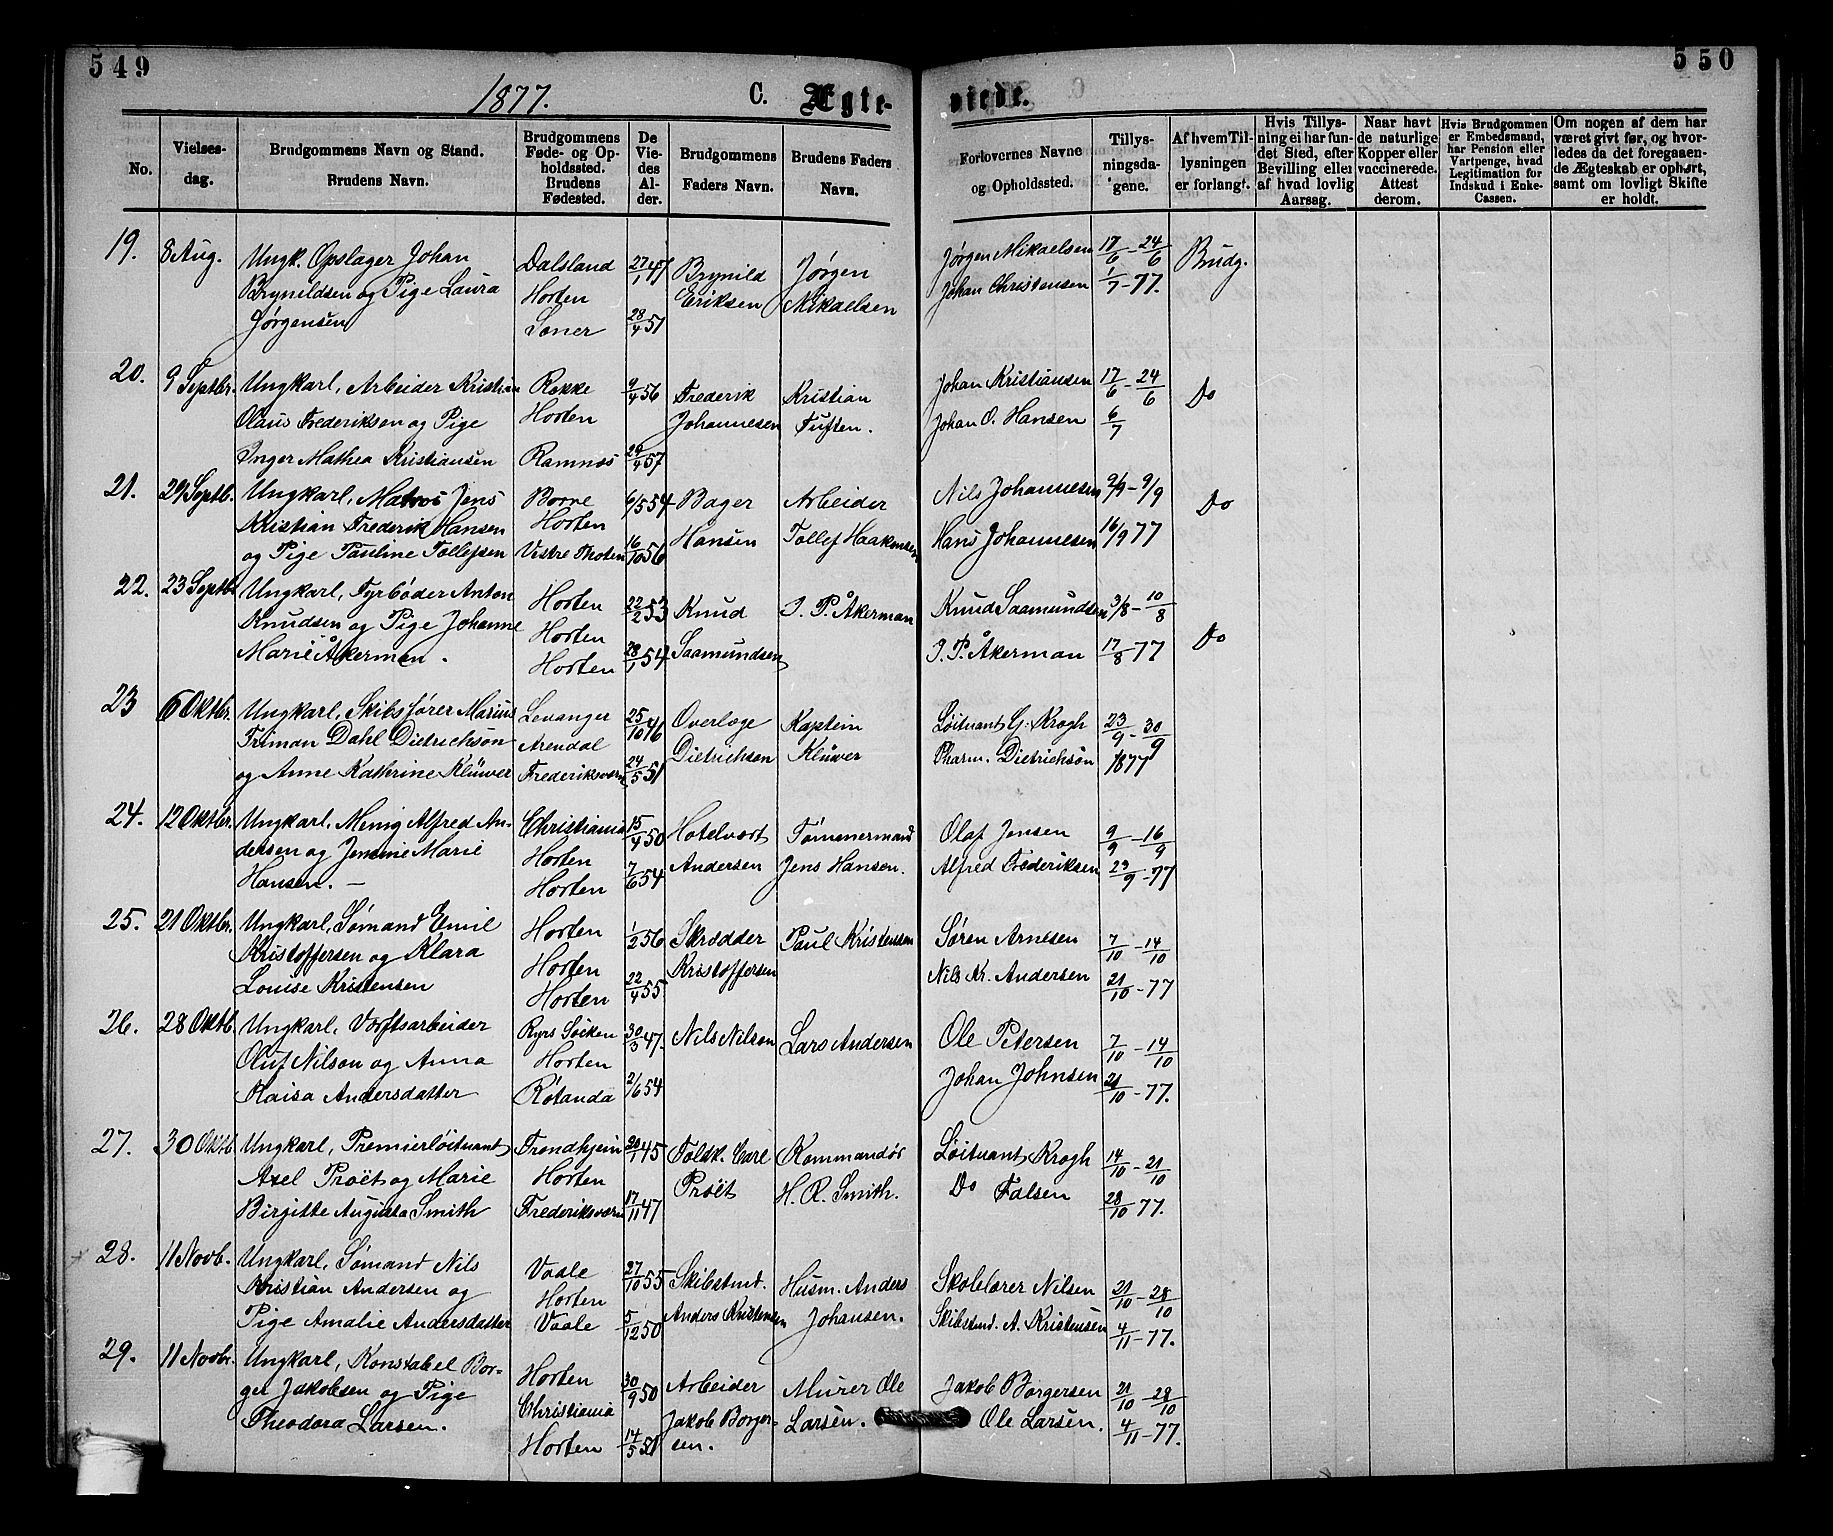 549
550
1877.
C. Ægte-
viede.
No.
Vielses-
dag.
Brudgommens Navn og Stand.
Brudens Navn.
Brudgommens
Føde- og Op-
holdssted.
Brudens
Fødested.
De
Vie-
des
Al-
der.
Brudgommens
Faders Navn.
Brudens Faders
Navn.
Forlovernes Navne
og Opholdssted.
Tillys-
ningsda-
gene.
Af hvem Til-
lysningen
er forlangt.
Hvis Tillys-
ning ei har fun-
det Sted, efter
Bevilling eller
af hvad lovlig
Aarsag.
Naar havt
de naturlige
Kopper eller
vaccinerede.
Attest
derom.
Hvis Brudgommen
er Embedsmand,
har Pension eller
Vartpenge, hvad
Legitimation for
Indskud i Enke-
Cassen.
Om nogen af dem har
været givt før, og hvor-
ledes da det foregaaen-
de Ægteskab er ophørt,
samt om lovligt Skifte
er holdt.
19.
8 Aug.
Ungk. Opslager Johan
Brynildsen og Pige Laura
Jørgensen
Dalsland
Horten
Soner
27/1 47
28/4 51
Brynild
Eriksen
Jørgen
Mikaelsen
Jørgen Mikaelsen
Johan Christensen
17/6 - 24/6
1/7 - 77.
Brudg.
20.
9 Septbr.
Ungkarl, Arbeider Kristian
Olaus Frederiksen og Pige
Inger Mathea Kristiansen
Rakke
Horten
Ramnæs
9/4 56
29/4 57
Frederik
Johannesen
Kristian
Tuften.
Johan Kristiansen
Johan O. Hansen
17/6 - 24/6
6/7
Do
21.
Septb.
Ungkarl, Matros Jens
Kristian Frederik Hansen
og Pige Pauline Tollefsen
Borre
Horten
Vestre Thoten
6/5 54
16/10 56
Bager
Hansen
Arbeider
Tollef Haakensen
Nils Johannesen
Hans Johannesen
2/9 - 9/9
16/9 77
Do
22.
23 Septb.
Ungkarl, Fyrbøder Anton
Knudsen og Pige Johanne
Marie Åkerman.
Horten
Horten
Horten
22/2 53
28/1 54
Knud
Saamundsen
J. P. Åkerman
Knud Saamundsen
J. P. Åkerman
3/8 - 10/8
17/8 - 77
Do
23
6 Oktbr.
Ungkarl, Skibsfører Marius
Friman Dahl Dietrichson
og Anne Kathrine Klüwer
Levanger
Arendal
Frederiksværn
25/10 46
24/5 51
Overlæge
Dietrichson
Kaptein
Klüwer
Løitnant G. Krogh
Pharm. Dietrichson
23/9 - 30/9
1877
24.
12 Oktbr.
Ungkarl, Menig Alfred An-
dersen og Jensine Marie
Hansen. —
Christiania
Horten
Horten
15/4 50
7/6 54
Hotelvært
Andersen
Tømmermand
Jens Hansen.
Olaf Jensen
Alfred Frederiksen
9/9 - 16/9
23/9 - 77
25.
21 Oktbr.
Ungkarl, Sømand Emil
Kristoffersen og Klara
Louise Kristensen
Horten
Horten
Horten
1/2 56
22/4 55
Skrædder
Kristoffersen
Paul Kristensen
Søren Arnesen
Nils Kr. Andersen
7/10 - 14/10
21/10 - 77
26.
28 Oktb.
Ungkarl, Værftsarbeider
Oluf Nilson og Anna
Kaisa Andersdatter
Ryrs Socken
Horten
Rötanda
30/3 47.
2/6 54
Nils Nilson
Lars Andersen
Ole Petersen
Johan Johnsen
7/10 - 14/10
21/10 - 77.
27.
30 Oktb.
Ungkarl, Premierløitnant
Axel Pröet og Marie
Birgitte Augusta Smith
Trondhjem
Horten
Frederiksværn
20/1 45
17/11 47
Toldk. Carl
Pröet
Kommandør
H. R. Smith.
Løitnant Krogh
Do Falsen
14/10 - 21/10
28/10 - 77.
28.
11 Novb.
Ungkarl, Sømand Nils
Kristian Andersen og
Pige Amalie Andersdatter
Vaale
Horten
Vaale
27/10 55
5/12 50
Skibstmd.
Anders Kristensen
Husm. Anders
Johansen.
Skolelærer Nilsen
Skibstmd. A. Kristensen
21/10 - 28/10
4/11 - 77.
29.
11 Novbr.
Ungkarl, Konstabel Bor-
ger Jakobsen og Pige
Theodora Larsen.
Horten
Christiania
Horten
30/9 50
14/5 51
Arbeider
Jakob Borger-
sen.
Murer Ole
Larsen.
Jakob Borgersen
Ole Larsen.
21/10 - 28/10
4/11 - 77.